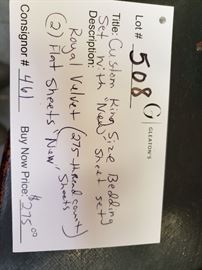 Lot # 508 G
GLEATON'S
Title: Custom King Size Bedding
Set with "New" Sheet sets
Description:
Royal Velvet (275 thread count)
(2) Flat Sheets "New" Sheets
Consignor # 461 Buy Now Price: $275.00